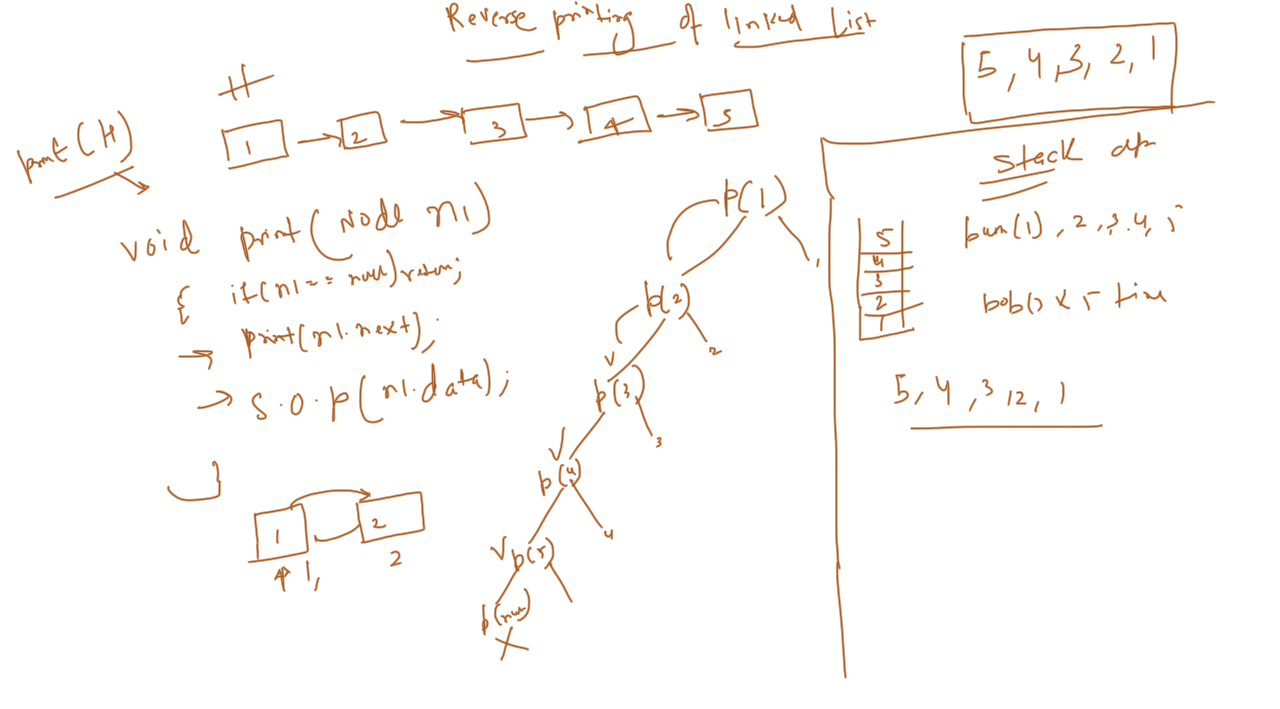 Reverse printing of linked List
5, 4, 3, 2, 1
H
print(H)
1 2 3 4 5
void print(Node n1)
{ if(n1 == null) return;
print(n1.next);
S.O.P(n1.data);
}
1 2
1, 2
p(1)
1
p(2)
2
p(3)
3
p(4)
4
p(5)
p(null)
Stack
5
4
3
2
1
push(1), 2, 3, 4, 5
pop() x 5 time
5, 4, 3, 2, 1